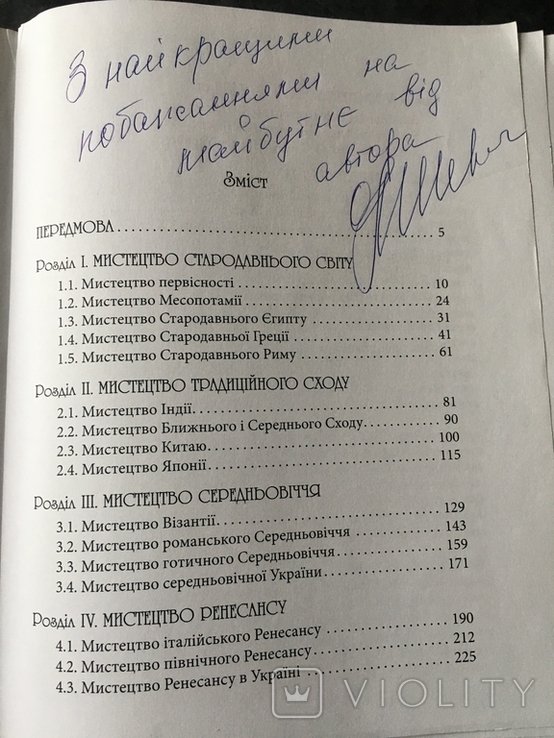 З найкращими
побажаннями на
майбутнє від
автора
Зміст
ПЕРЕДМОВА 5
Розділ I. МИСТЕЦТВО СТАРОДАВНЬОГО СВІТУ
1.1. Мистецтво первісності 10
1.2. Мистецтво Месопотамії 24
1.3. Мистецтво Стародавнього Єгипту 31
1.4. Мистецтво Стародавньої Греції 41
1.5. Мистецтво Стародавнього Риму 61
Розділ II. МИСТЕЦТВО ТРАДИЦІЙНОГО СХОДУ
2.1. Мистецтво Індії 81
2.2. Мистецтво Ближнього і Середнього Сходу 90
2.3. Мистецтво Китаю 100
2.4. Мистецтво Японії 115
Розділ III. МИСТЕЦТВО СЕРЕДНЬОВІЧЧЯ
3.1. Мистецтво Візантії 129
3.2. Мистецтво романського Середньовіччя 143
3.3. Мистецтво готичного Середньовіччя 159
3.4. Мистецтво середньовічної України 171
Розділ IV. МИСТЕЦТВО РЕНЕСАНСУ
4.1. Мистецтво італійського Ренесансу 190
4.2. Мистецтво північного Ренесансу 212
4.3. Мистецтво Ренесансу в Україні 225
VIOLITY